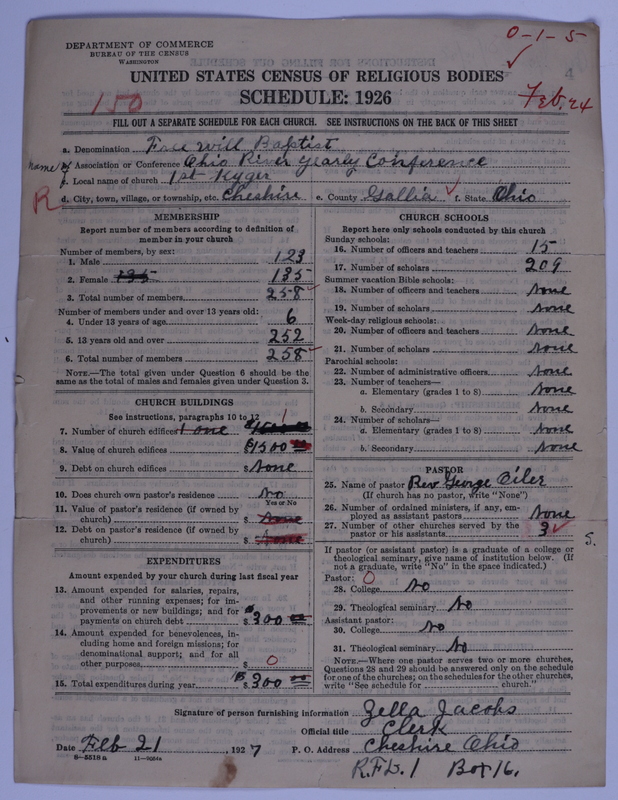 0-1-5
DEPARTMENT OF COMMERCE
BUREAU OF THE CENSUS
WASHINGTON
UNITED STATES CENSUS OF RELIGIOUS BODIES
SCHEDULE: 1926
150
Feb. 24
4
FILL OUT A SEPARATE SCHEDULE FOR EACH CHURCH. SEE INSTRUCTIONS ON THE BACK OF THIS SHEET
a. Denomination Free will Baptist
name of Association or Conference Ohio River Yearly Conference
c. Local name of church 1st Kyger
R
d. City, town, village, or township, etc. Cheshire e. County Gallia f. State Ohio
MEMBERSHIP
Report number of members according to definition of
member in your church
Number of members, by sex:
1. Male 123
2. Female 135 135
3. Total number of members 258
Number of members under and over 13 years old:
4. Under 13 years of age 6
5. 13 years old and over 252
6. Total number of members 258
NOTE.—The total given under Question 6 should be
the same as the total of males and females given under Question 3.
CHURCH BUILDINGS
See instructions, paragraphs 10 to 12
7. Number of church edifices 1 one
8. Value of church edifices $1500
9. Debt on church edifices $ None
10. Does church own pastor's residence No
Yes or No
11. Value of pastor's residence (if owned by
church) $ None
12. Debt on pastor's residence (if owned by
church) $ None
EXPENDITURES
Amount expended by your church during last fiscal year
13. Amount expended for salaries, repairs,
and other running expenses; for im-
provements or new buildings; and for
payments on church debt $ 300
14. Amount expended for benevolences, in-
cluding home and foreign missions; for
denominational support; and for all
other purposes $ 0
15. Total expenditures during year $ 300 00
CHURCH SCHOOLS
Report here only schools conducted by this church
Sunday schools:
16. Number of officers and teachers 15
17. Number of scholars 209
Summer vacation Bible schools:
18. Number of officers and teachers None
19. Number of scholars None
Week-day religious schools:
20. Number of officers and teachers None
21. Number of scholars None
Parochial schools:
22. Number of administrative officers None
23. Number of teachers—
a. Elementary (grades 1 to 8) None
b. Secondary None
24. Number of scholars—
a. Elementary (grades 1 to 8) None
b. Secondary None
PASTOR
25. Name of pastor Rev George Eiler
(If church has no pastor, write "None")
26. Number of ordained ministers, if any, em-
ployed as assistant pastors None
27. Number of other churches served by the
pastor or his assistants 3
S.
If pastor (or assistant pastor) is a graduate of a college or
theological seminary, give name of institution below. (If
not a graduate, write "No" in the space indicated.)
Pastor: 0
28. College No
29. Theological seminary No
Assistant pastor:
30. College No
31. Theological seminary No
NOTE.—Where one pastor serves two or more churches,
Questions 28 and 29 should be answered only on the schedule
for one of the churches; on the schedules for the other churches,
write "See schedule for church."
Signature of person furnishing information Zella Jacobs
Official title Clerk
Date Feb 21, 1927 P. O. Address Cheshire Ohio
8—5518 a
R.F.D. 1 Box 16.